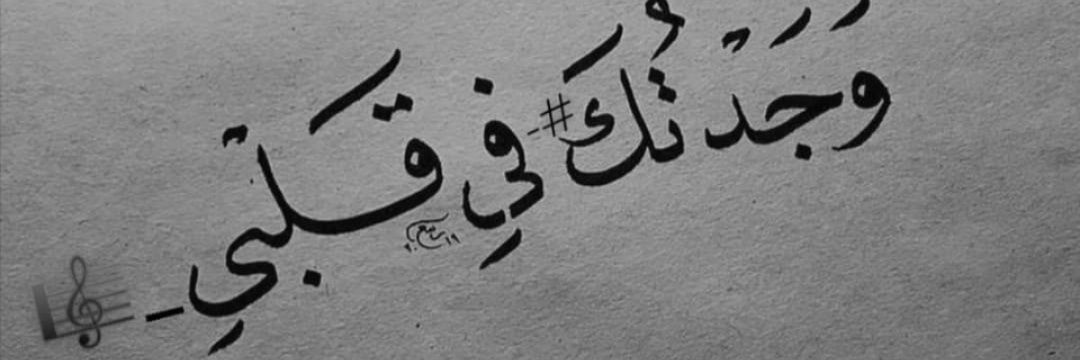 وَجَدْتُكَ#_ فِي قَلْبِي_